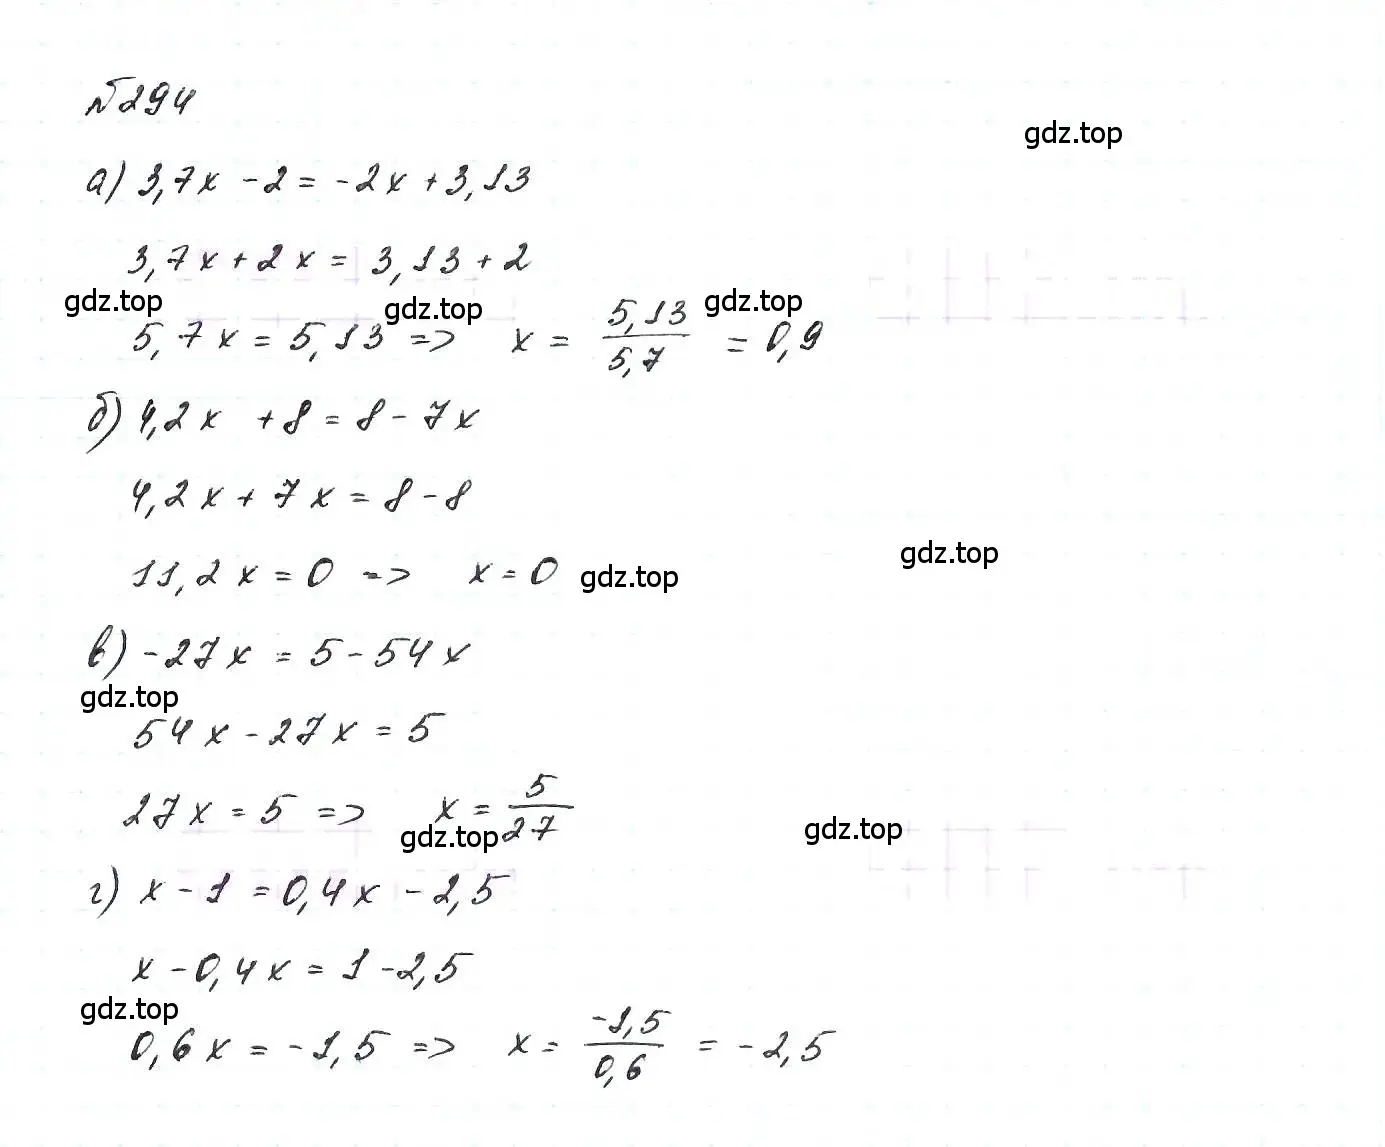 №294
gdz.top
а) 3,7x - 2 = -2x + 3,13
3,7x + 2x = 3,13 + 2
gdz.top gdz.top gdz.top
5,7x = 5,13 => x = 5,13/5,7 = 0,9
б) 4,2x + 8 = 8 - 7x
4,2x + 7x = 8 - 8
gdz.top
11,2x = 0 => x = 0 gdz.top
в) -27x = 5 - 54x
gdz.top
54x - 27x = 5
27x = 5 => x = 5/27
gdz.top gdz.top
г) x - 1 = 0,4x - 2,5
x - 0,4x = 1 - 2,5
gdz.top
0,6x = -1,5 => x = -1,5/0,6 = -2,5